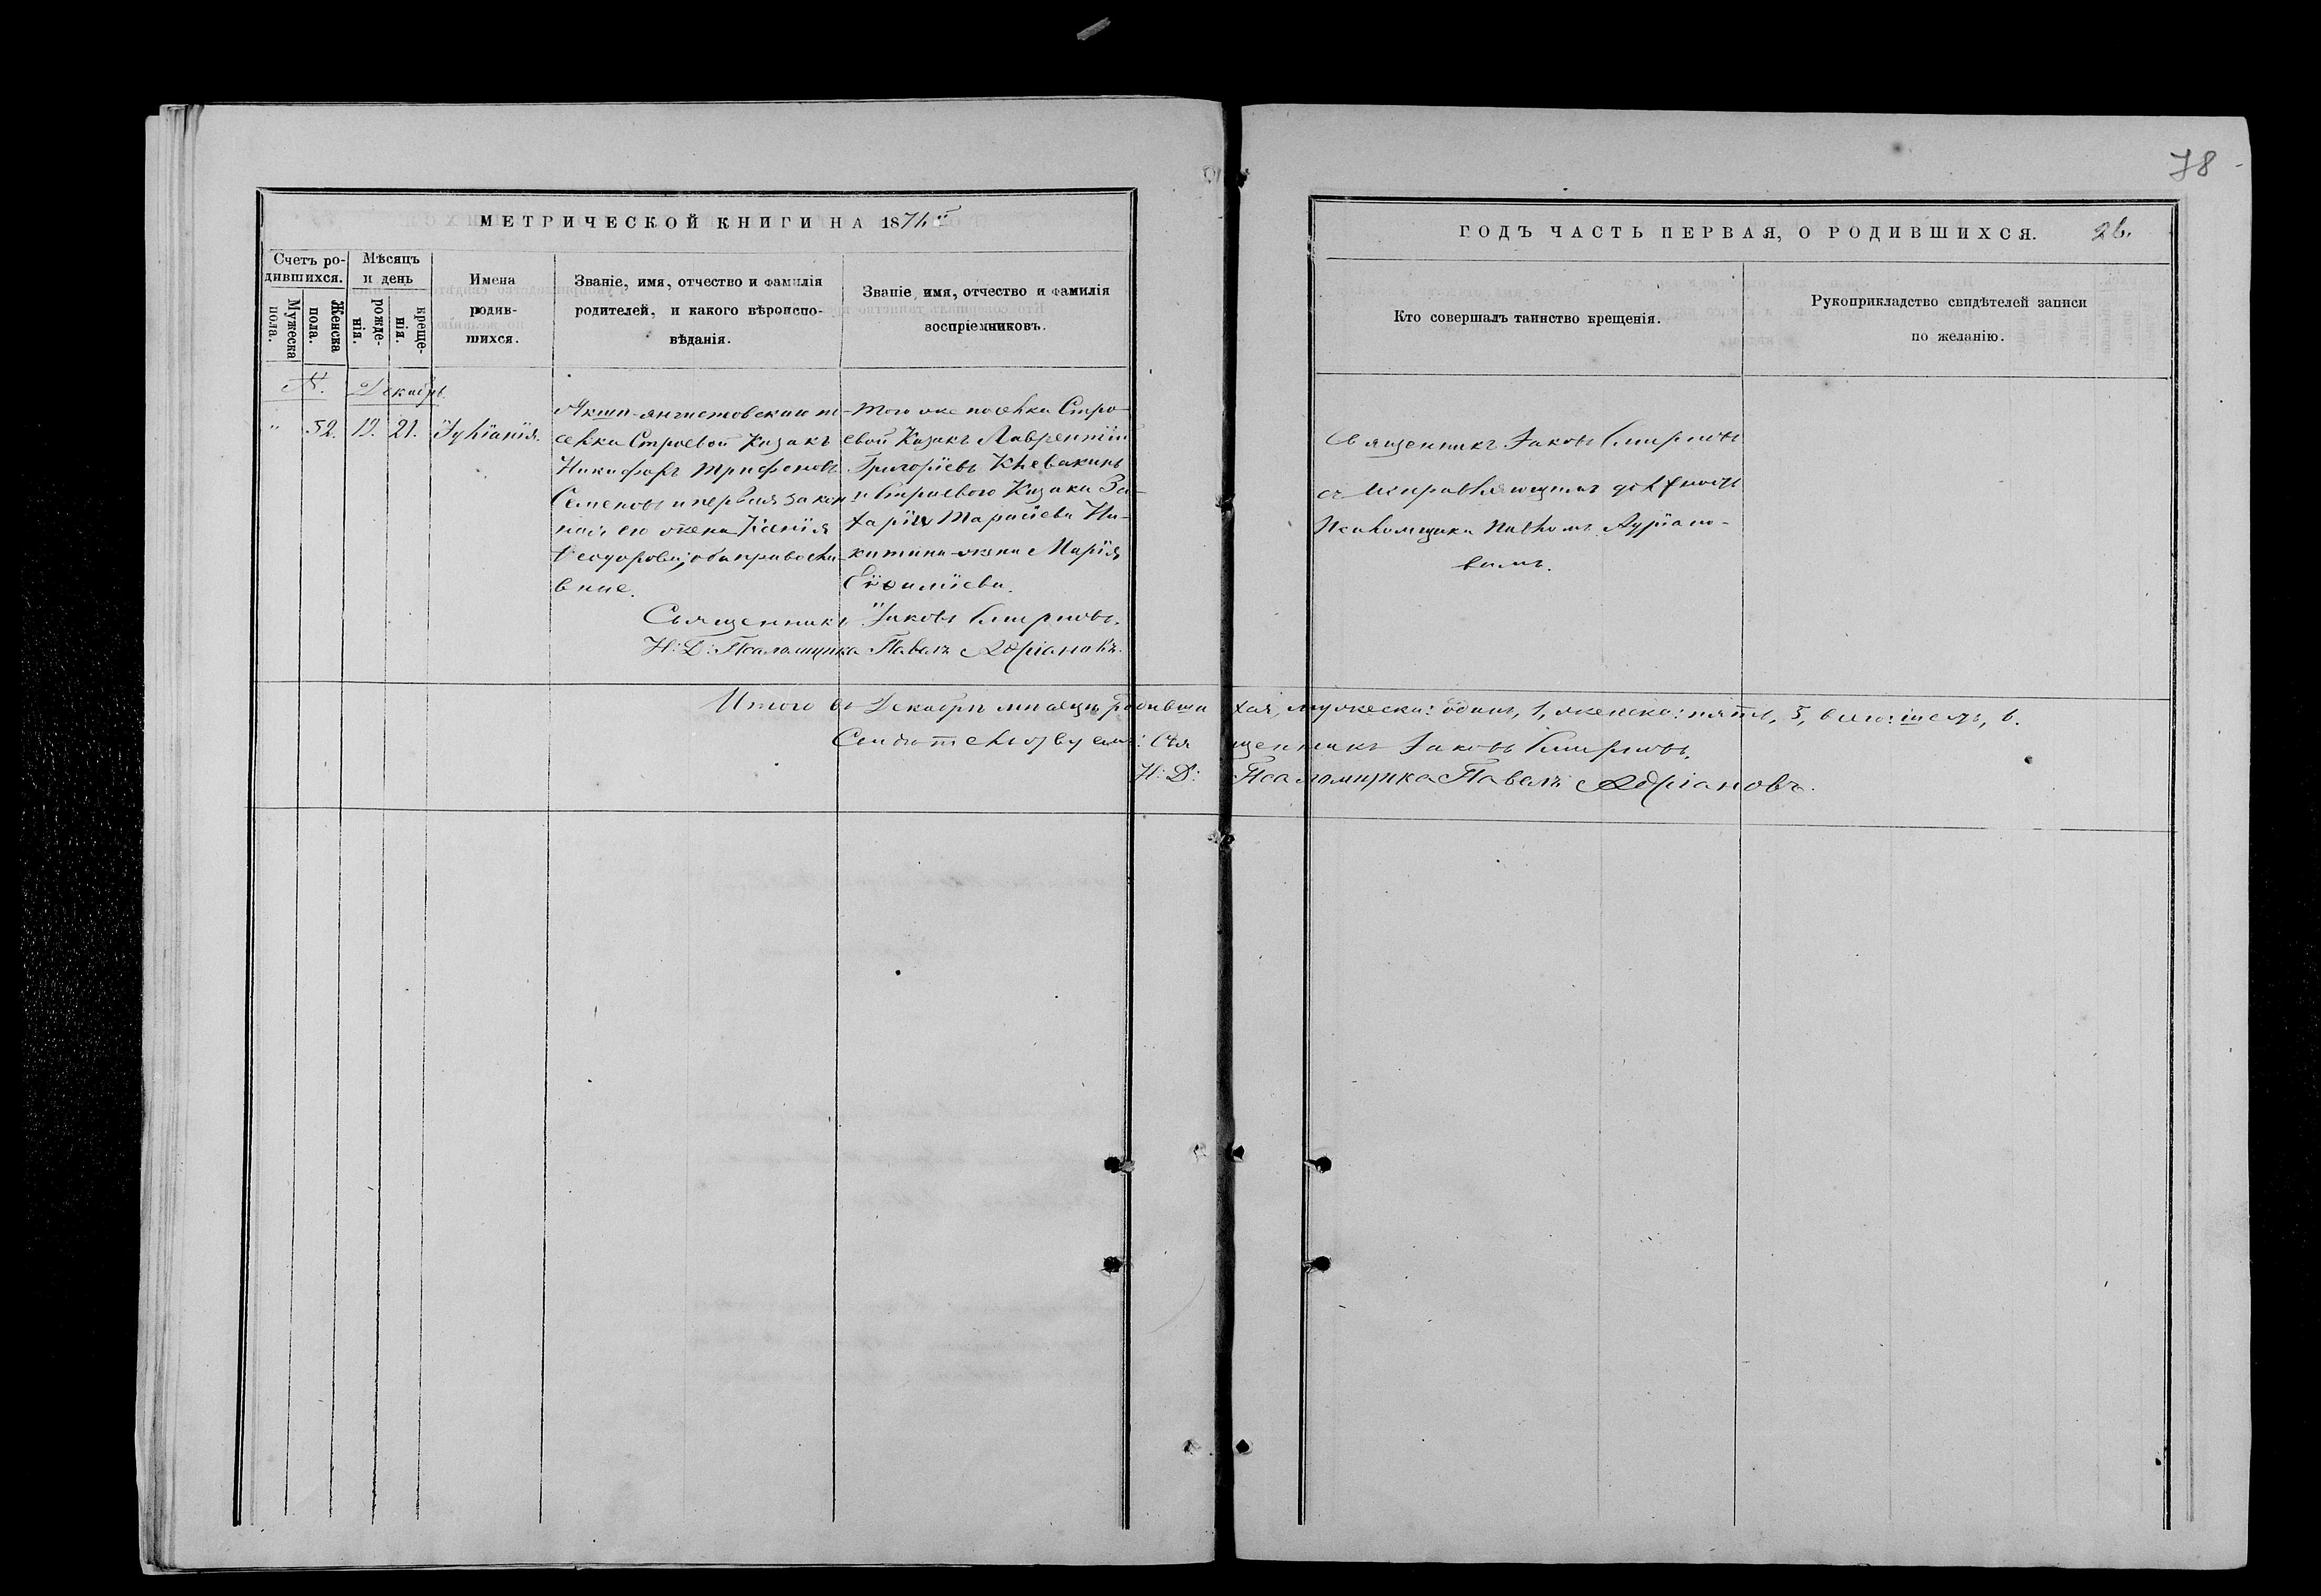 78
МЕТРИЧЕСКОЙ КНИГИ НА 1874й
ГОДЪ ЧАСТЬ ПЕРВАЯ, О РОДИВШИХСЯ. 26.
Счетъ ро-
дившихся.
Мужеска
пола.
Женска
пола.
Мѣсяцъ
и день
рожде-
нія.
креще-
нія.
Имена
родив-
шихся.
Званіе, имя, отчество и фамилія
родителей, и какого вѣроиспо-
вѣданія.
Званіе имя, отчество и фамилія
воспріемниковъ.
Кто совершалъ таинство крещенія.
Рукоприкладство свидѣтелей записи
по желанію.
№. Декабрь.
" 52. 19. 21. Іуліанія.
сѣлка Строевой Казакъ
Никифоръ Трифоновъ
Семеновъ и первая закон
ная его жена Ксенія
Ѳеодорова; оба правосла-
вные.
того же посѣлка Стро-
евой Казакъ Лаврентій
Григоріевъ Клевакинъ
и Строеваго Казака За-
харія Тарасіева Ни-
китина жена Марія
Священникъ Іаковъ Смирновъ.
Н: Д: Псаломщика Павелъ Адріановъ.
Священникъ Іаковъ Смирновъ
съ исправляющимъ должность
Псаломщика Павломъ Адріано-
вымъ.
Итого въ Декабрѣ мѣсяцѣ родивши хся, мужеска: одинъ, 1, женска: пять, 5, всего: шесть, 6.
Свидѣтельствуемъ: Свя щенникъ Іаковъ Смирновъ.
Н: Д: Псаломщика Павелъ Адріановъ.